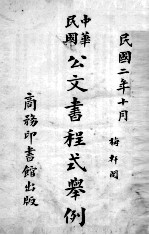 民國二年十月 梅軒閱
中華民國公文書程式舉例
商務印書館出版